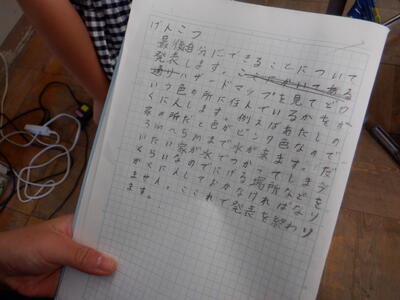 げんこつ
最後自分にできることについて
発表します。ここにかいてある
通りハザードマップを見てどう
いう色の所に住んでいるかをか
くに人します。例えばあたしの
家の所だと色がピンク色なので
3mへ5mまで水が来ます。だ
いたい家が水でつかってしまう
くらいなのでにげる場所などを
かくに人しておかなければなり
ません。これで発表を終わり
ます。